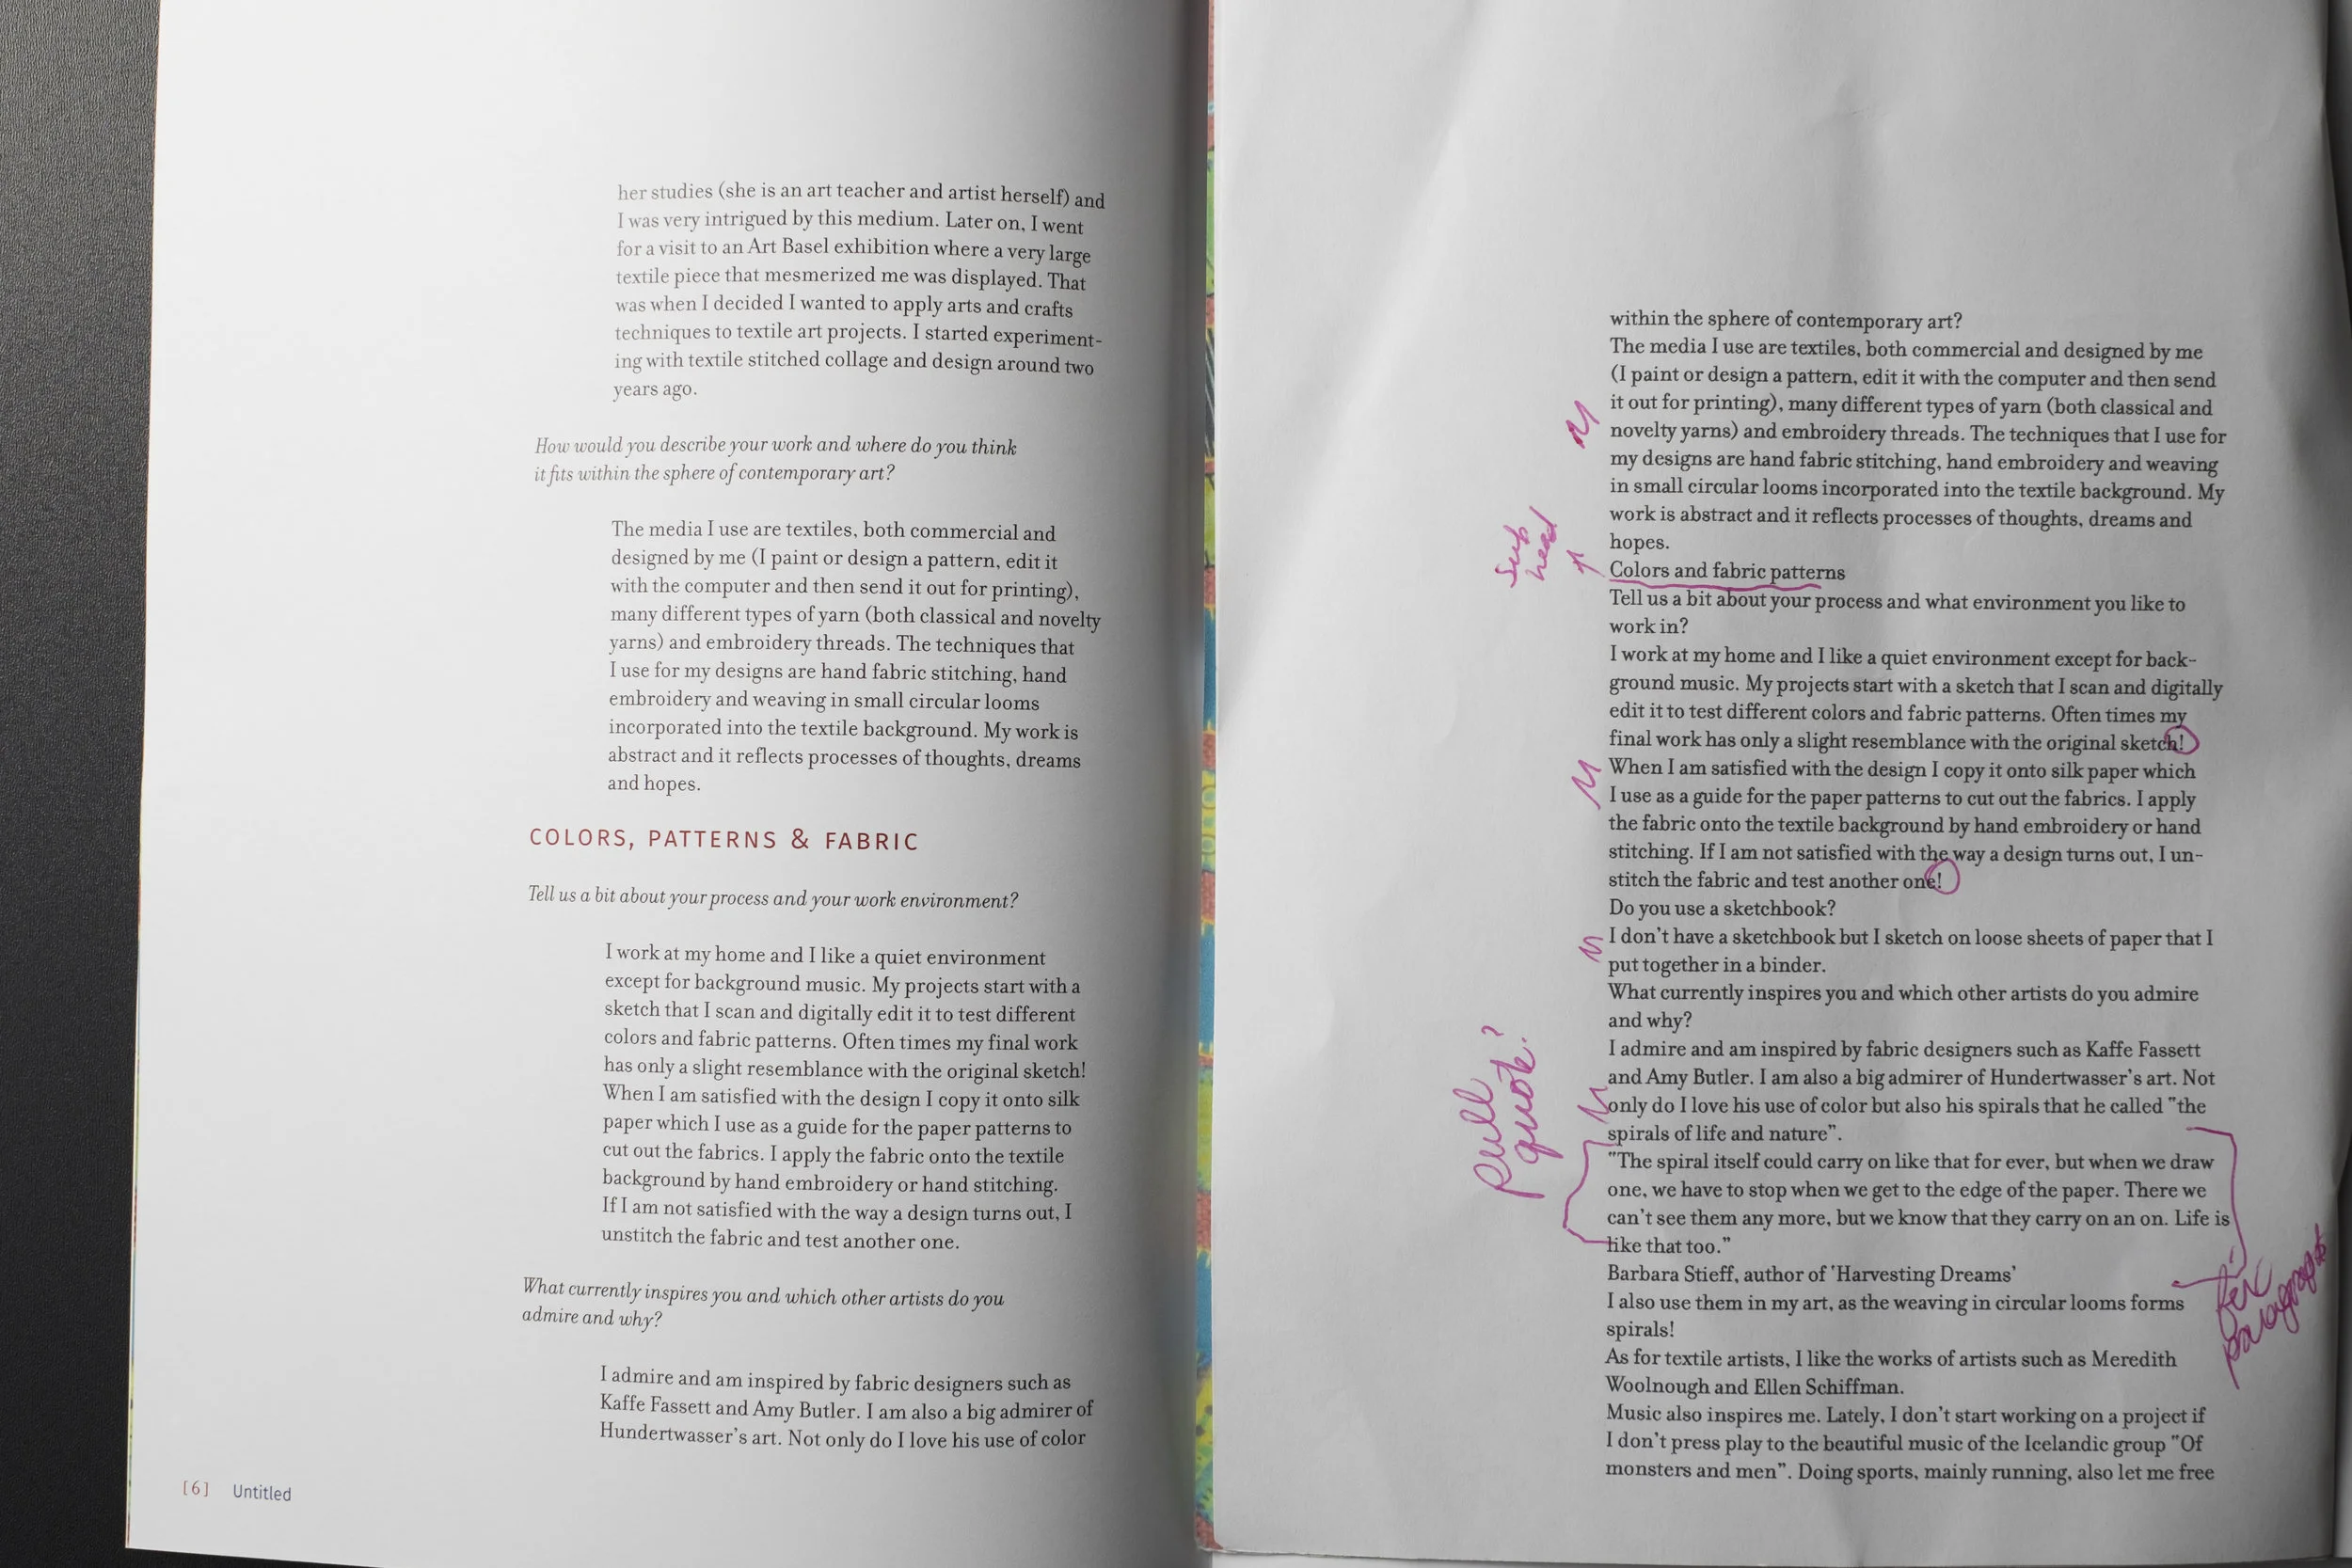 her studies (she is an art teacher and artist herself) and
I was very intrigued by this medium. Later on, I went
for a visit to an Art Basel exhibition where a very large
textile piece that mesmerized me was displayed. That
was when I decided I wanted to apply arts and crafts
techniques to textile art projects. I started experiment-
ing with textile stitched collage and design around two
years ago.
How would you describe your work and where do you think
it fits within the sphere of contemporary art?
The media I use are textiles, both commercial and
designed by me (I paint or design a pattern, edit it
with the computer and then send it out for printing),
many different types of yarn (both classical and novelty
yarns) and embroidery threads. The techniques that
I use for my designs are hand fabric stitching, hand
embroidery and weaving in small circular looms
incorporated into the textile background. My work is
abstract and it reflects processes of thoughts, dreams
and hopes.
COLORS, PATTERNS & FABRIC
Tell us a bit about your process and your work environment?
I work at my home and I like a quiet environment
except for background music. My projects start with a
sketch that I scan and digitally edit it to test different
colors and fabric patterns. Often times my final work
has only a slight resemblance with the original sketch!
When I am satisfied with the design I copy it onto silk
paper which I use as a guide for the paper patterns to
cut out the fabrics. I apply the fabric onto the textile
background by hand embroidery or hand stitching.
If I am not satisfied with the way a design turns out, I
unstitch the fabric and test another one.
What currently inspires you and which other artists do you
admire and why?
I admire and am inspired by fabric designers such as
Kaffe Fassett and Amy Butler. I am also a big admirer of
Hundertwasser's art. Not only do I love his use of color
[6] Untitled
within the sphere of contemporary art?
The media I use are textiles, both commercial and designed by me
(I paint or design a pattern, edit it with the computer and then send
it out for printing), many different types of yarn (both classical and
novelty yarns) and embroidery threads. The techniques that I use for
my designs are hand fabric stitching, hand embroidery and weaving
in small circular looms incorporated into the textile background. My
work is abstract and it reflects processes of thoughts, dreams and
hopes.
Sub
head
Colors and fabric patterns
Tell us a bit about your process and what environment you like to
work in?
I work at my home and I like a quiet environment except for back-
ground music. My projects start with a sketch that I scan and digitally
edit it to test different colors and fabric patterns. Often times my
final work has only a slight resemblance with the original sketch!
When I am satisfied with the design I copy it onto silk paper which
I use as a guide for the paper patterns to cut out the fabrics. I apply
the fabric onto the textile background by hand embroidery or hand
stitching. If I am not satisfied with the way a design turns out, I un-
stitch the fabric and test another one!
Do you use a sketchbook?
I don't have a sketchbook but I sketch on loose sheets of paper that I
put together in a binder.
What currently inspires you and which other artists do you admire
and why?
I admire and am inspired by fabric designers such as Kaffe Fassett
and Amy Butler. I am also a big admirer of Hundertwasser's art. Not
only do I love his use of color but also his spirals that he called "the
spirals of life and nature".
pull
quote?
"The spiral itself could carry on like that for ever, but when we draw
one, we have to stop when we get to the edge of the paper. There we
can't see them any more, but we know that they carry on an on. Life is
like that too."
Barbara Stieff, author of 'Harvesting Dreams'
I also use them in my art, as the weaving in circular looms forms
spirals!
fix
paragraphs
As for textile artists, I like the works of artists such as Meredith
Woolnough and Ellen Schiffman.
Music also inspires me. Lately, I don't start working on a project if
I don't press play to the beautiful music of the Icelandic group "Of
monsters and men". Doing sports, mainly running, also let me free